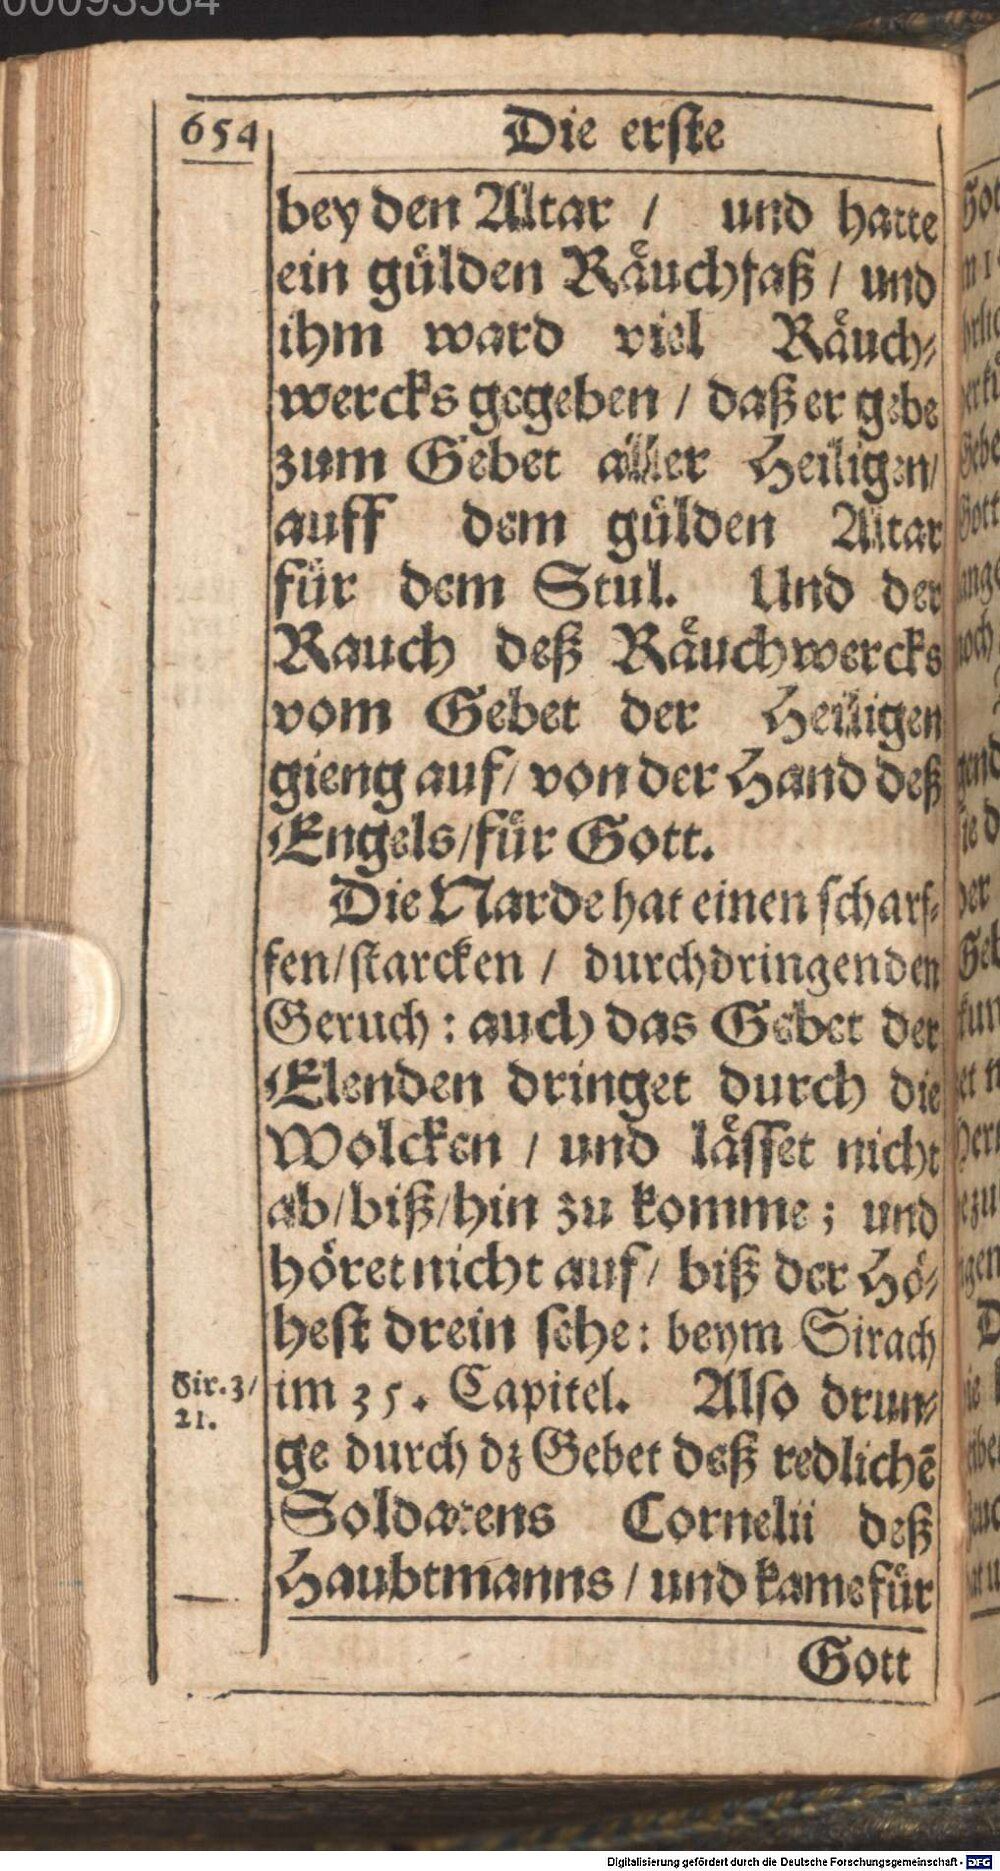 654
Die erste
bey den Altar / und hatte
ein gülden Räuchfaß / und
ihm ward viel Räuch-
wercks gegeben / daß er gebe
zum Gebet aller Heiligen/
auff dem gülden Altar
für dem Stul. Und der
Rauch deß Räuchwercks
vom Gebet der Heiligen
gieng auf/ von der Hand deß
Engels/für Gott.
Die Narde hat einen scharf-
fen/starcken / durchdringenden
Geruch: auch das Gebet der
Elenden dringet durch die
Wolcken / und lässet nicht
ab/biß/hin zu komme; und
höret nicht auf/ biß der Hö-
hest drein sehe: beym Sirach
Sir. 3/
21.
im 35. Capitel. Also drun-
ge durch dz Gebet deß redlichē
Soldatens Cornelii deß
Haubtmanns / und kame für
Gott
Digitalisierung gefördert durch die Deutsche Forschungsgemeinschaft - DFG